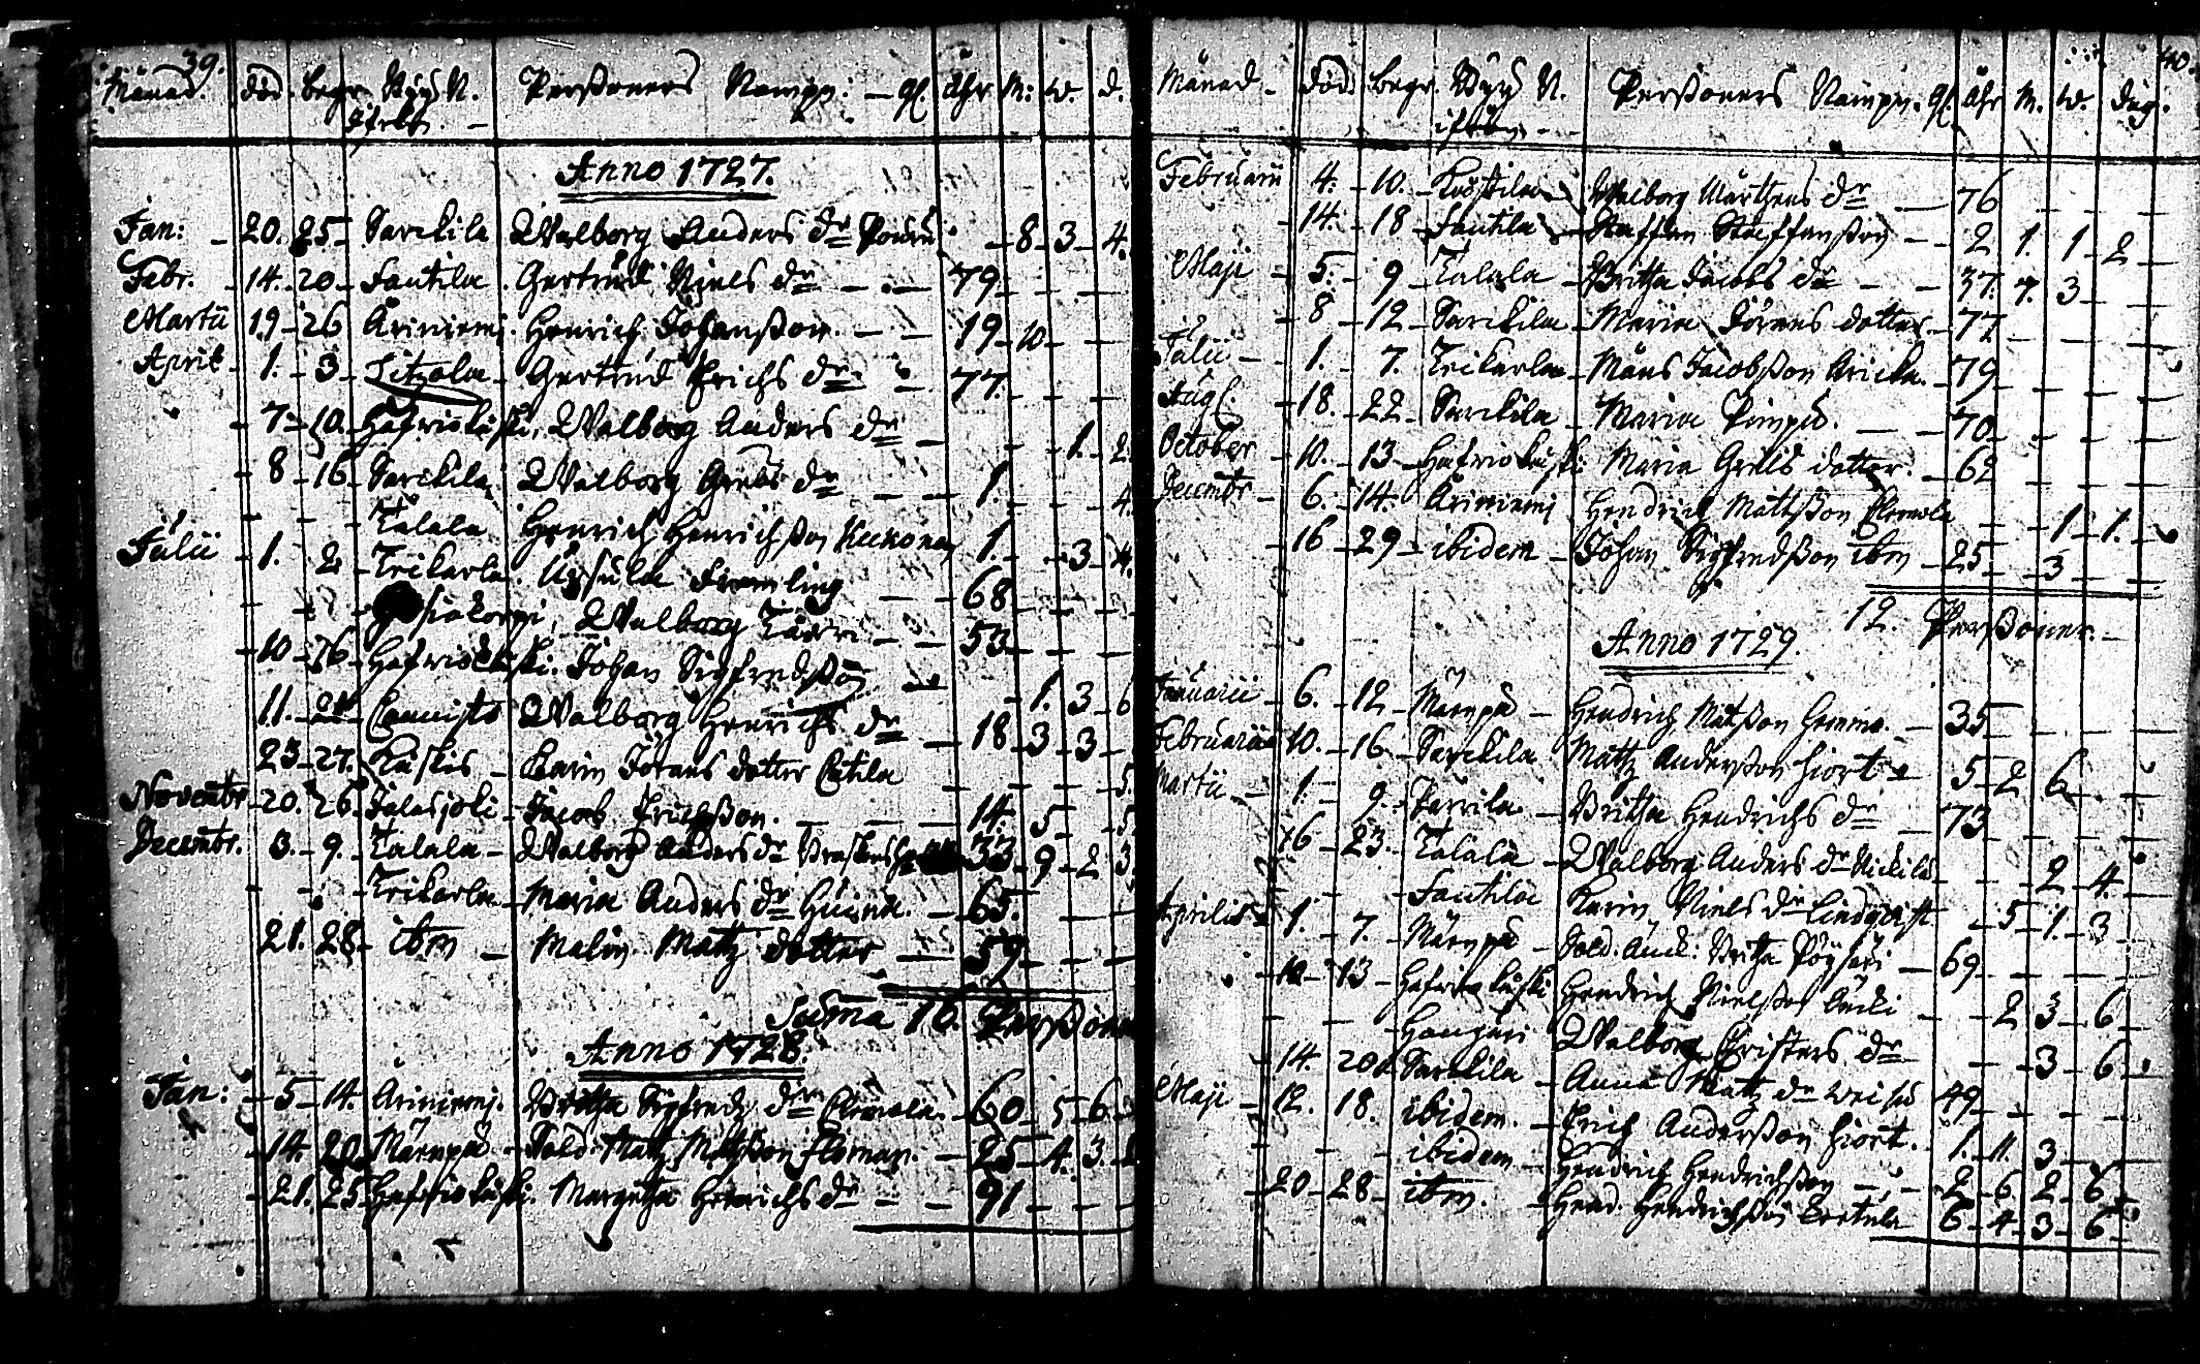 39.
Månad. död. begr. Byy N. Perßoners Nampn: gl. åhr M: W. d.
Anno 1727.
Jan: 20. 25 Sarckila Walborg Anders dr 8 3 4.
Febr. 14. 20 Sautila Gertrud Niels dr 79
Martii 19 26 Äriniemi Henrich Johanßon 19 10
Aprit 1. 3 Gertrud Erichs dr 77.
7 10. Hafrioluski, Walborg Anders dr 1. 2
8 16 Sarckila Walborg Grels dr 1. 4
Talala Henrich Henrichßon Kukonen 1. 3 4.
Julii 1. 2 Trikarla Ursula Framling 68
Walborg 53
10 16 Hafrioluski. Johan Sigfredßon 1. 3 6
11. 21 Cannisto Walborg Henrichs dr 18 3 3
23 27. Kuskis Karin Jörans dotter Catila 5.
Novembr 20. 26. Jalasjoki Jacob Erichßon. 14. 5 5
Decembr. 3. 9. Talala Walborg Anders dr 33 9 2 3
Trikarla Maria Anders dr 65.
21. 28 ibm Malin Matz dotter 59
Suma 16. Perßoner
Anno 1728.
Jan: 5 14. Äriniemj. Britha Sigfredz dr Clemola. 60 5 6
14. 20. Märnpä Sold. Matz Matßon Floman. 25 4. 3.
21. 25 Hafrioluski. Margetha Henrichs dr 91
40.
Månad död. begr. Byy N. Perßoners Nampn. gl. åhr M. W. dag.
Februarii 4. 10. Walborg Mårthens dr 76
14. 18 Sautila Staffan Staffanßon 2 1. 1 2
Maji 5. 9 Talala Britha Jacobs dr 37. 7. 3
8 12 Sarckila Maria Jörans dotter 77
Julii 1. 7. Trikarla Måns Jacobßon 79
Aug. 18. 22 Sarckila Maria Pimpu. 70
October 10. 13 Hafrioluski Maria Grells dotter. 62
Decembr 6. 14. Äriniemj Hendrich Mattßon Clemola 1 1.
16 29 ibidem Johan Sigfredßon ibm 25 3
12. Perßoner.
Anno 1729.
Januarii 6. 12 Märnpä Hendrich Matßon Hemma. 35
Februarii 10. 16 Sarckila Mattz Anderßon Hiort 5 2 6
Martii 1. 9. Parrila Britha Hendrichs dr 73
16 23. Talala Walborg Anders dr 2 4.
Sautila Karin Niels dr Lindqvist 5 1. 3
Aprilis 1. 7. Märnpä Sold. Änck: Britha Pöysäri 69
10 13 Hafrioluski Hendrich Nielßon 2 3 6
Walborg Christers dr 3 6
14. 20. Sarckila Anna Matz dr 49
Maji 12. 18. ibidem Erich Anderßon Hiort. 1. 11. 3
ibidem Hendrich Hendrichßon 2 6 2 6
20 28 ibm. Hend. Hendrichßon 6 4 3 6